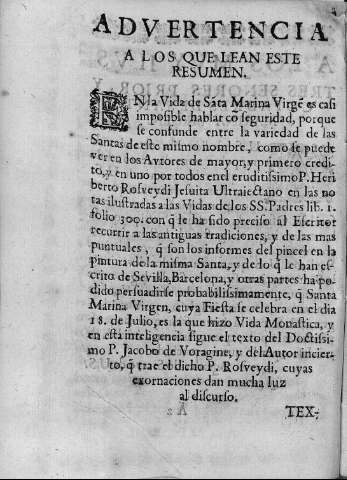 ADVERTENCIA
A LOS QUE LEAN ESTE
RESUMEN.
EN la Vida de Sãta Marina Virgẽ es casi
imposible hablar cõ seguridad, porque
se confunde entre la variedad de las
Santas de este mismo nombre, como se puede
ver en los Avtores de mayor, y primero credi-
to, y en uno por todos en el eruditissimo P. Heri
berto Rosveydi Jesuita Ultraiectano en las no
tas ilustradas a las Vidas de los SS. Padres lib. 1.
folio 300. con q̃ le ha sido preciso al Escritor
recurrir a las antiguas tradiciones, y de las mas
puntuales, q̃ son los informes del pincel en la
pintura de la misma Santa, y de lo q̃ le han es-
crito de Sevilla, Barcelona, y otras partes ha po
dido persuadirse probabilissimamente, q̃ Santa
Marina Virgen, cuya Fiesta se celebra en el dia
18. de Julio, es la que hizo Vida Monastica, y
en esta inteligencia sigue el texto del Doctissi-
mo P. Jacobo de Voragine, y del Autor incier-
to, q̃ trae el dicho P. Rosveydi, cuyas
exornaciones dan mucha luz
al discurso.
TEX-